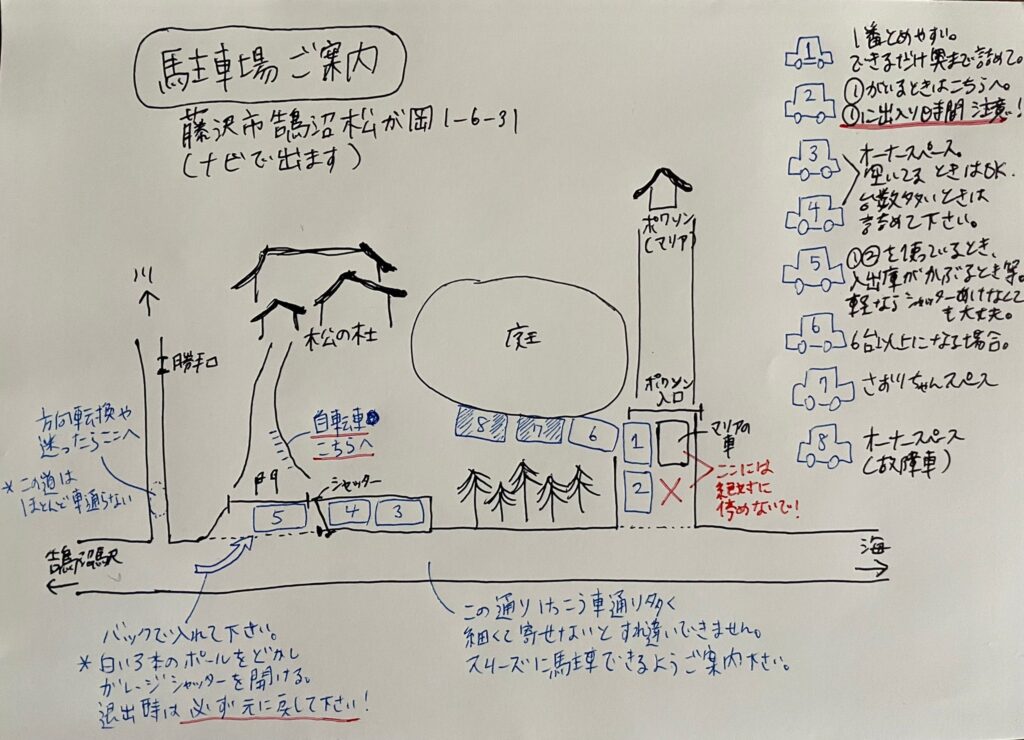 駐車場ご案内
藤沢市鵠沼松が岡1-6-31
(ナビで出ます)
1
1番とめやすい。
できるだけ奥まで詰めて。
2
①がいるときはこちらへ。
①に出入り時間注意!
3
4
オーナースペース。
空いてるときはOK.
台数多いときは
詰めて下さい。
5
①②を使っているとき、
入出庫がかぶるとき等。
軽ならシャッターあけなくて
も大丈夫。
6
6台以上になる場合。
7
さおりちゃんスペース
8
オーナースペース
(故障車)
川
勝手口
松の杜
庭
ポワソン
(マリア)
ポワソン
入口
マリアの
車
ここには
絶対に
停めないで!
方向転換や
迷ったらここへ
* この道は
ほとんど車通らない
自転車
こちらへ
門
シャッター
8
7
6
1
2
5
4
3
鵠沼駅
海
バックで入れて下さい。
* 白い3本のポールをどかし
ガレージシャッターを開ける。
退出時は必ず元に戻して下さい!
この通りけっこう車通り多く
細くて寄せないとすれ違いできません。
スムーズに駐車できるようご案内下さい。